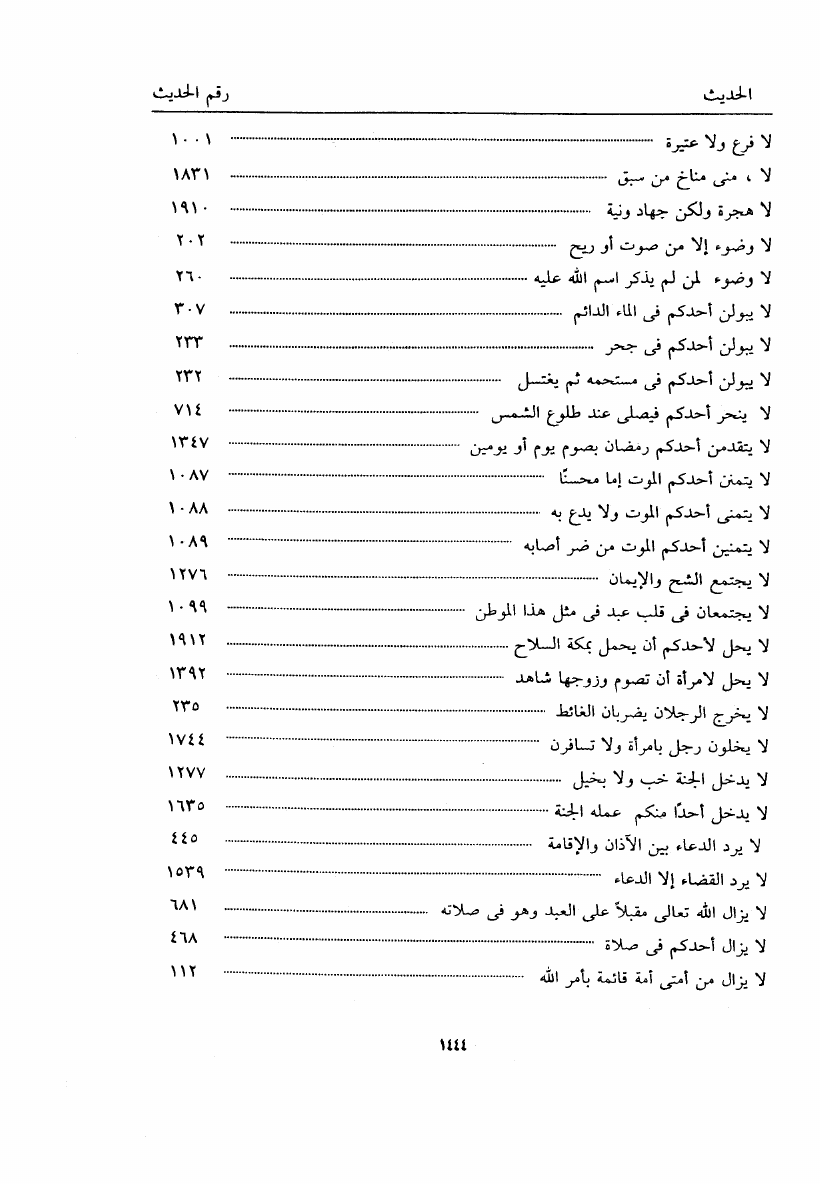 الحديث رقم الحديث
لا فرع ولا عتيرة ١٠٠١
لا ، منى مناخ من سبق ١٨٣١
لا هجرة ولكن جهاد ونية ١٩١٠
لا وضوء إلا من صوت أو ريح ٢٠٢
لا وضوء لمن لم يذكر اسم الله عليه ٢٦٠
لا يبولن أحدكم فى الماء الدائم ٣٠٧
لا يبولن أحدكم فى جحر ٢٣٣
لا يبولن أحدكم فى مستحمه ثم يغتسل ٢٣٢
لا ينحر أحدكم فيصلى عند طلوع الشمس ٧١٤
لا يتقدمن أحدكم رمضان بصوم يوم أو يومين ١٣٤٧
لا يتمنن أحدكم الموت إما محسنًا ١٠٨٧
لا يتمنى أحدكم الموت ولا يدع به ١٠٨٨
لا يتمنين أحدكم الموت من ضر أصابه ١٠٨٩
لا يجتمع الشح والإيمان ١٢٧٦
لا يجتمعان فى قلب عبد فى مثل هذا الموطن ١٠٩٩
لا يحل لأحدكم أن يحمل بمكة السلاح ١٩١٢
لا يحل لامرأة أن تصوم وزوجها شاهد ١٣٩٢
لا يخرج الرجلان يضربان الغائط ٢٣٥
لا يخلون رجل بامرأة ولا تسافرن ١٧٤٤
لا يدخل الجنة خب ولا بخيل ١٢٧٧
لا يدخل أحدًا منكم عمله الجنة ١٦٣٥
لا يرد الدعاء بين الآذان والإقامة ٤٤٥
لا يرد القضاء إلا الدعاء ١٥٣٩
لا يزال الله تعالى مقبلاً على العبد وهو فى صلاته ٦٨١
لا يزال أحدكم فى صلاة ٤٦٨
لا يزال من أمتى أمة قائمة بأمر الله ١١٢
١٤٤٤